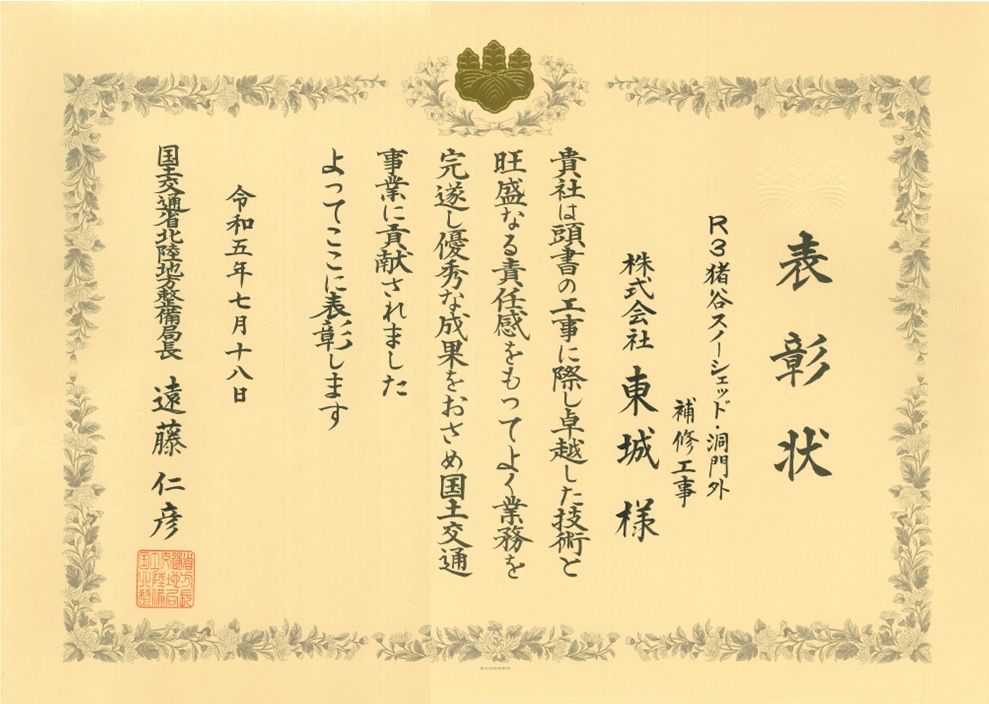 表彰状
R3猪谷スノーシェッド・洞門外
補修工事
株式会社 東城 様
貴社は頭書の工事に際し卓越した技術と
旺盛なる責任感をもってよく業務を
完遂し優秀な成果をおさめ国土交通
事業に貢献されました
よってここに表彰します
令和五年七月十八日
国土交通省北陸地方整備局長 遠藤 仁彦